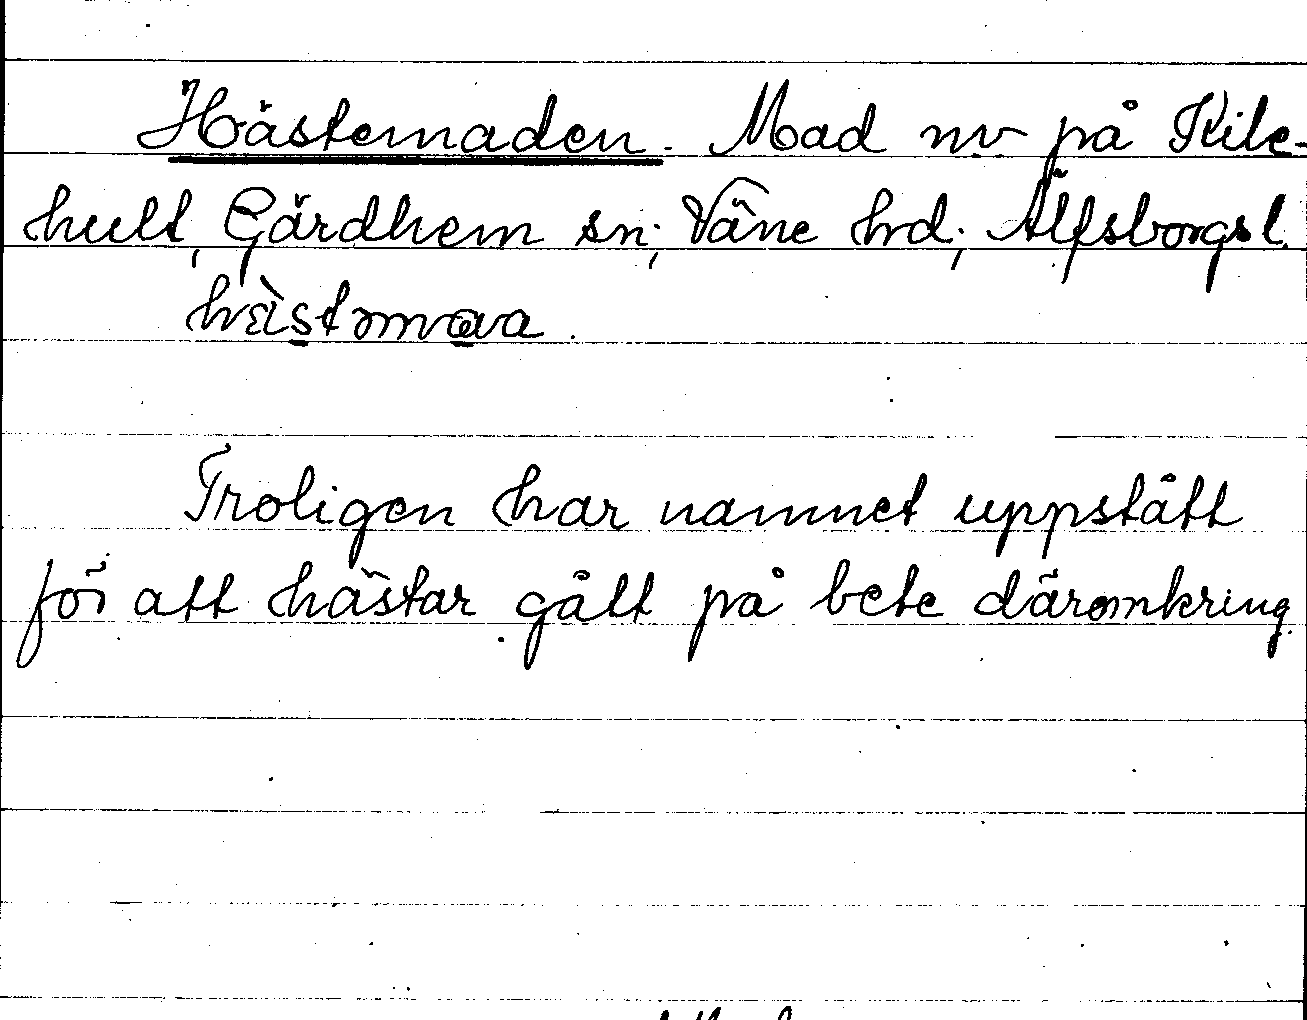 Hästemaden. Mad nv på Kile-
hult, Gärdhem sn; Väne hrd; Älfsborgs l.
Troligen har namnet uppstått
för att hästar gått på bete däromkring.